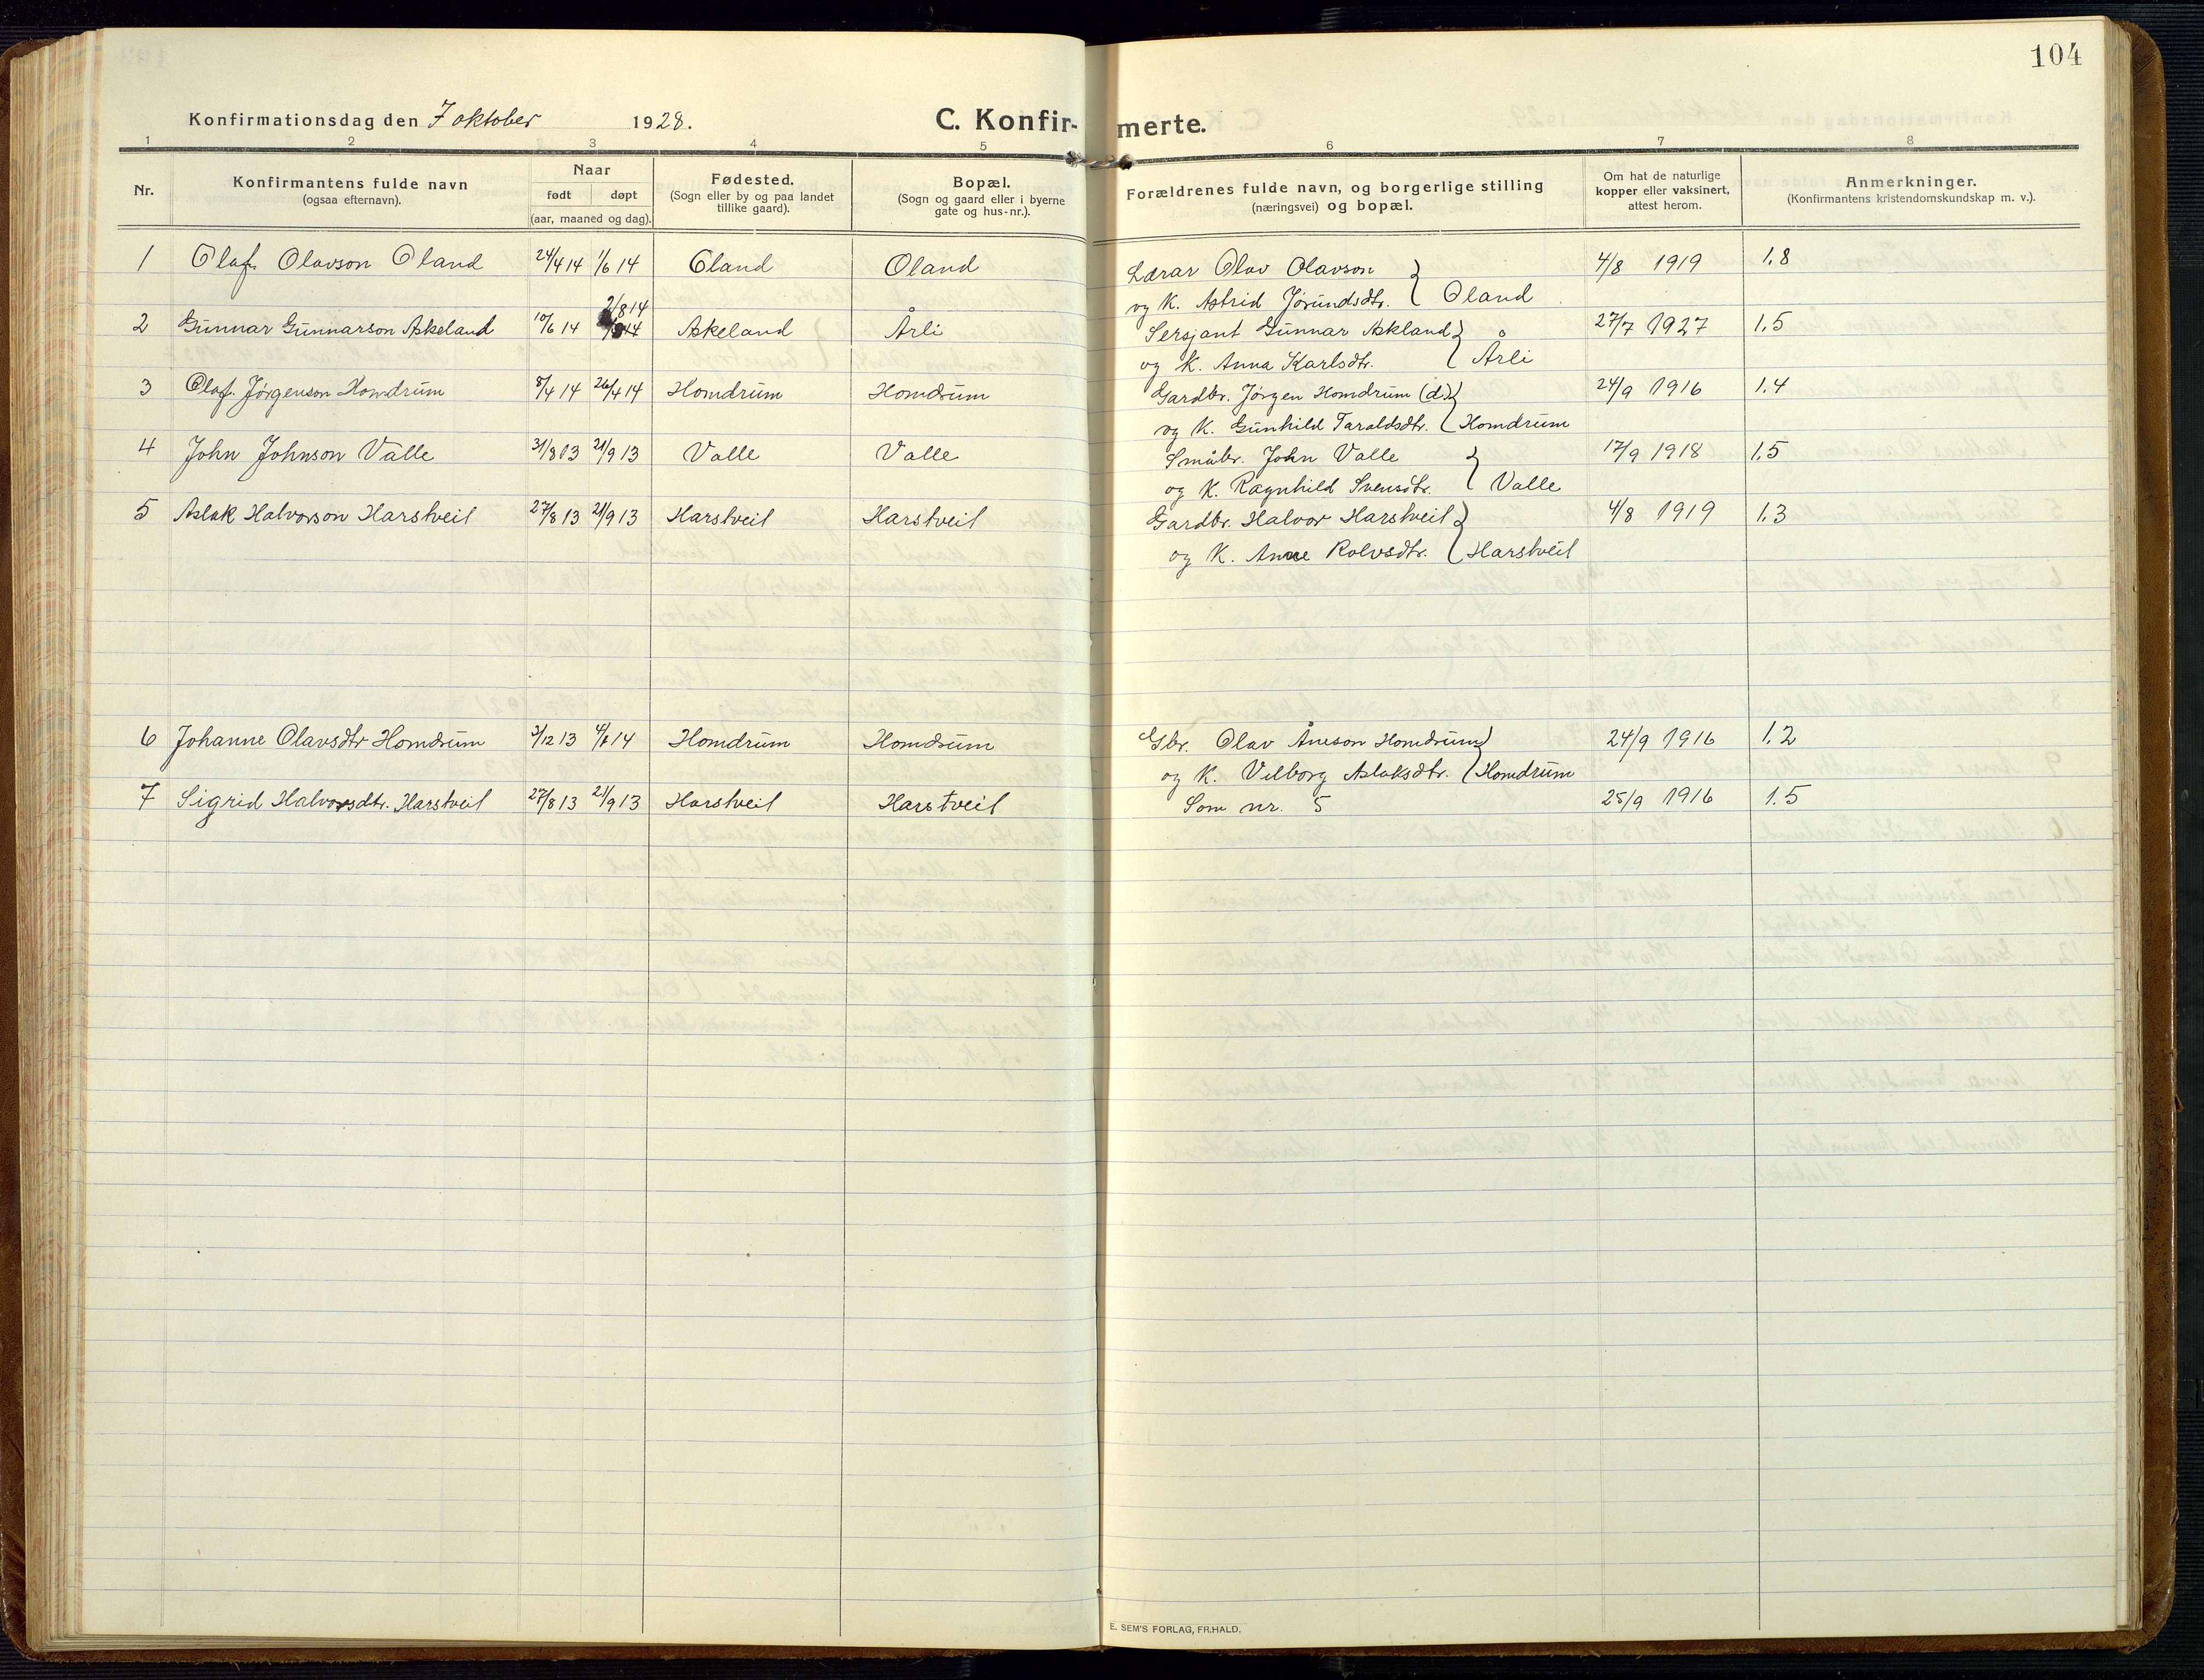 104
Konfirmationsdag den 7 oktober 1928. C. Konfir- merte.
1 2 3 4 5 6 7 8
Nr. Konfirmantens fulde navn (ogsaa efternavn). Naar født døpt (aar, maaned og dag). Fødested. (Sogn eller by og paa landet tillike gaard). Bopæl. (Sogn og gaard eller i byerne gate og hus-nr.). Forældrenes fulde navn, og borgerlige stilling (næringsvei) og bopæl. Om hat de naturlige kopper eller vaksinert, attest herom. Anmerkninger. (Konfirmantens kristendomskundskap m. v.).
1 Olaf Olavson Oland 24/4 14 1/6 14 Oland Oland Lærar Olav Olavson 4/8 1919 1.8
og K. Astrid Jørundsdtr. } Oland
2/8 14
2 Gunnar Gunnarson Askeland 10/6 14 Askeland Årli Sersjant Gunnar Askland 27/7 1927 1.5
og K. Anna Karlsdtr. } Årli
3 Olaf Jørgenson Homdrum 8/4 14 26/4 14 Homdrum Homdrum Gardbr. Jørgen Homdrum (d.) 24/9 1916 1.4
og K. Gunhild Taraldsdtr. } Homdrum
4 John Johnson Valle 31/8 13 21/9 13 Valle Valle Småbr. John Valle 17/9 1918 1.5
og K. Ragnhild Svensdtr. } Valle
5 Aslak Halvorson Harstveit 27/8 13 21/9 13 Harstveit Harstveit Gardbr. Halvor Harstveit 4/8 1919 1.3
og K. Anne Rolvsdtr. } Harstveit
6 Johanne Olavsdtr Homdrum 3/12 13 4/1 14 Homdrum Homdrum Gbr. Olav Åneson Homdrum 24/9 1916 1.2
og K. Vilborg Aslaksdtr. } Homdrum
7 Sigrid Halvorsdtr. Harstveit 27/8 13 21/9 13 Harstveit Harstveit Som nr. 5 25/9 1916 1.5
E. SEM'S FORLAG, FR.HALD.